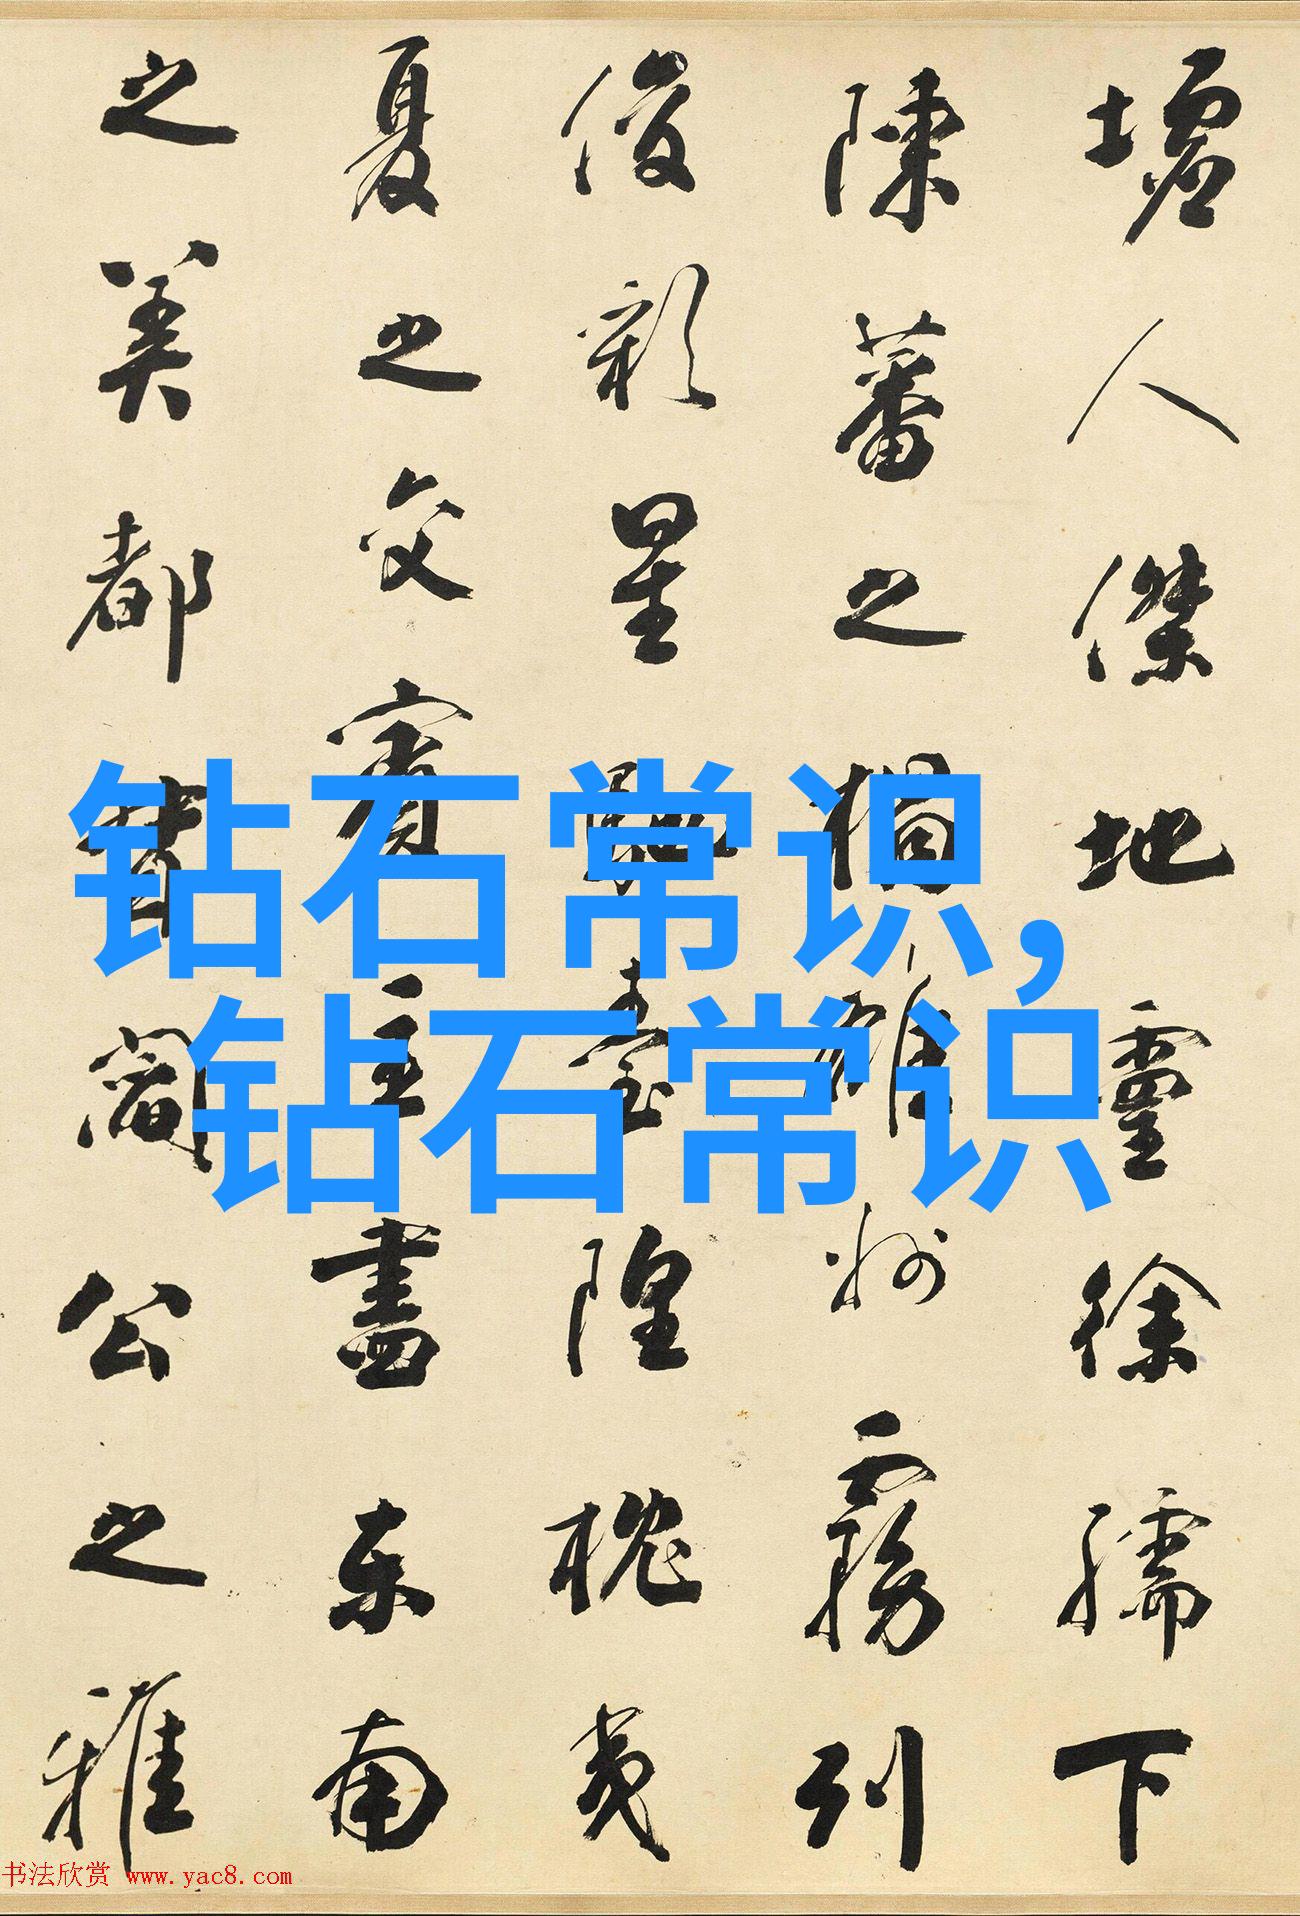 墟人傑地靈徐孺下
陳蕃之榻雄州霧列
俊彩星馳臺隍枕夷
夏之交賓主盡東南
之美都督閻公之雅
钻石常识,
钻石常识
书法欣赏 www.yac8.com